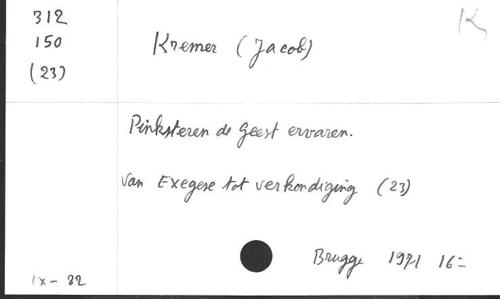 312
150
(23)
K
Kremer (Jacob)
Pinksteren de Geest ervaren.
van Exegese tot verkondiging (23)
Brugge 1971 16=
ix - 82